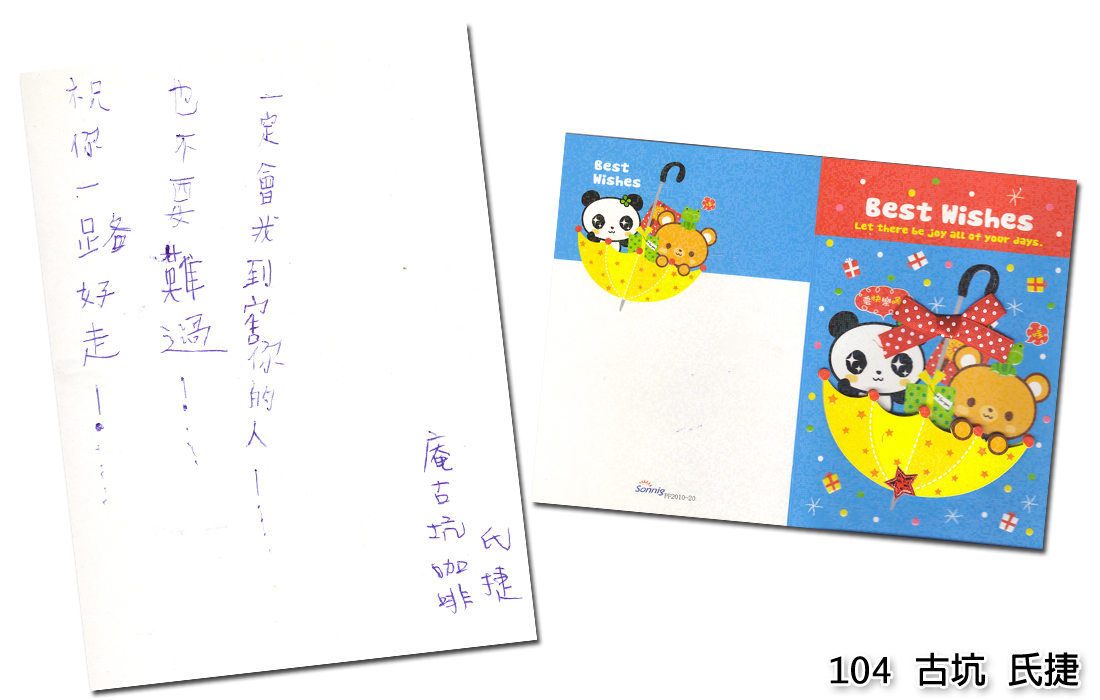 祝你一路好走!....
也不要難過!...
一定會找到害你的人!...
庵古坑咖啡
氏捷
Best
Wishes
Sonnig PP2010-20
Best Wishes
Let there be joy all of your days.
104 古坑 氏捷